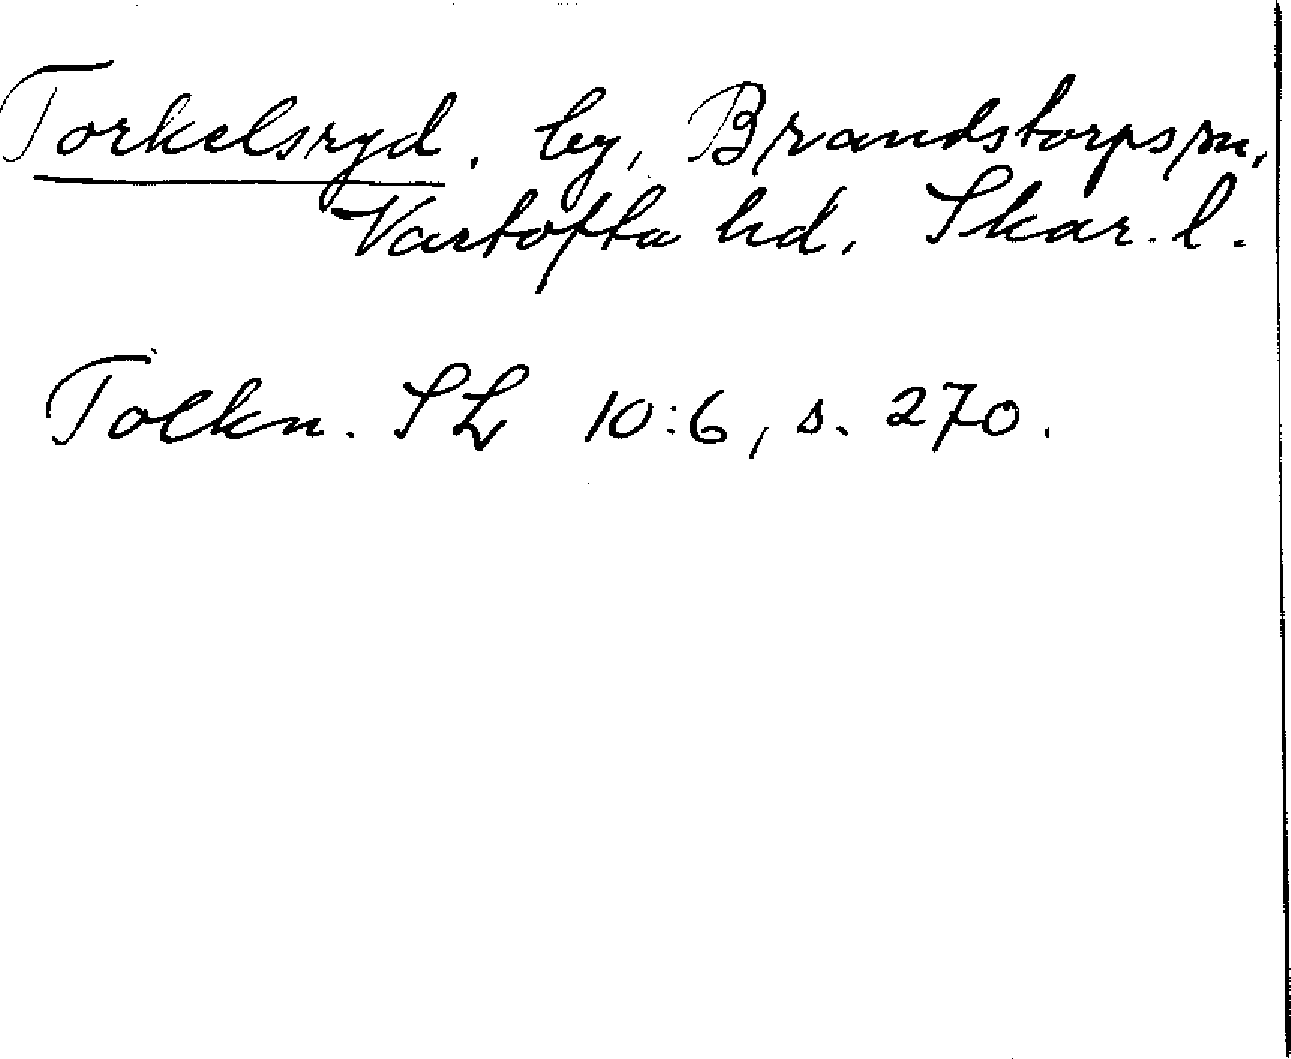 Torkelsryd. by, Brandstorps sn,
Vartofta hd, Skar. l.
Tolkn. SL 10:6, s. 270.